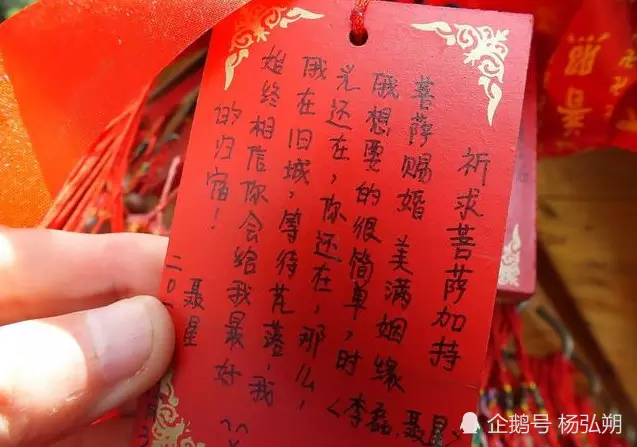 祈求菩萨加持
菩萨赐婚 美满姻缘
〈李磊.聂星
俄想要的很简单,时
光还在,你还在,那么,
俄在旧城,等待花落,我
始终相信你会给我最好
的归宿!
聂星
二〇
企鹅号 杨弘朔